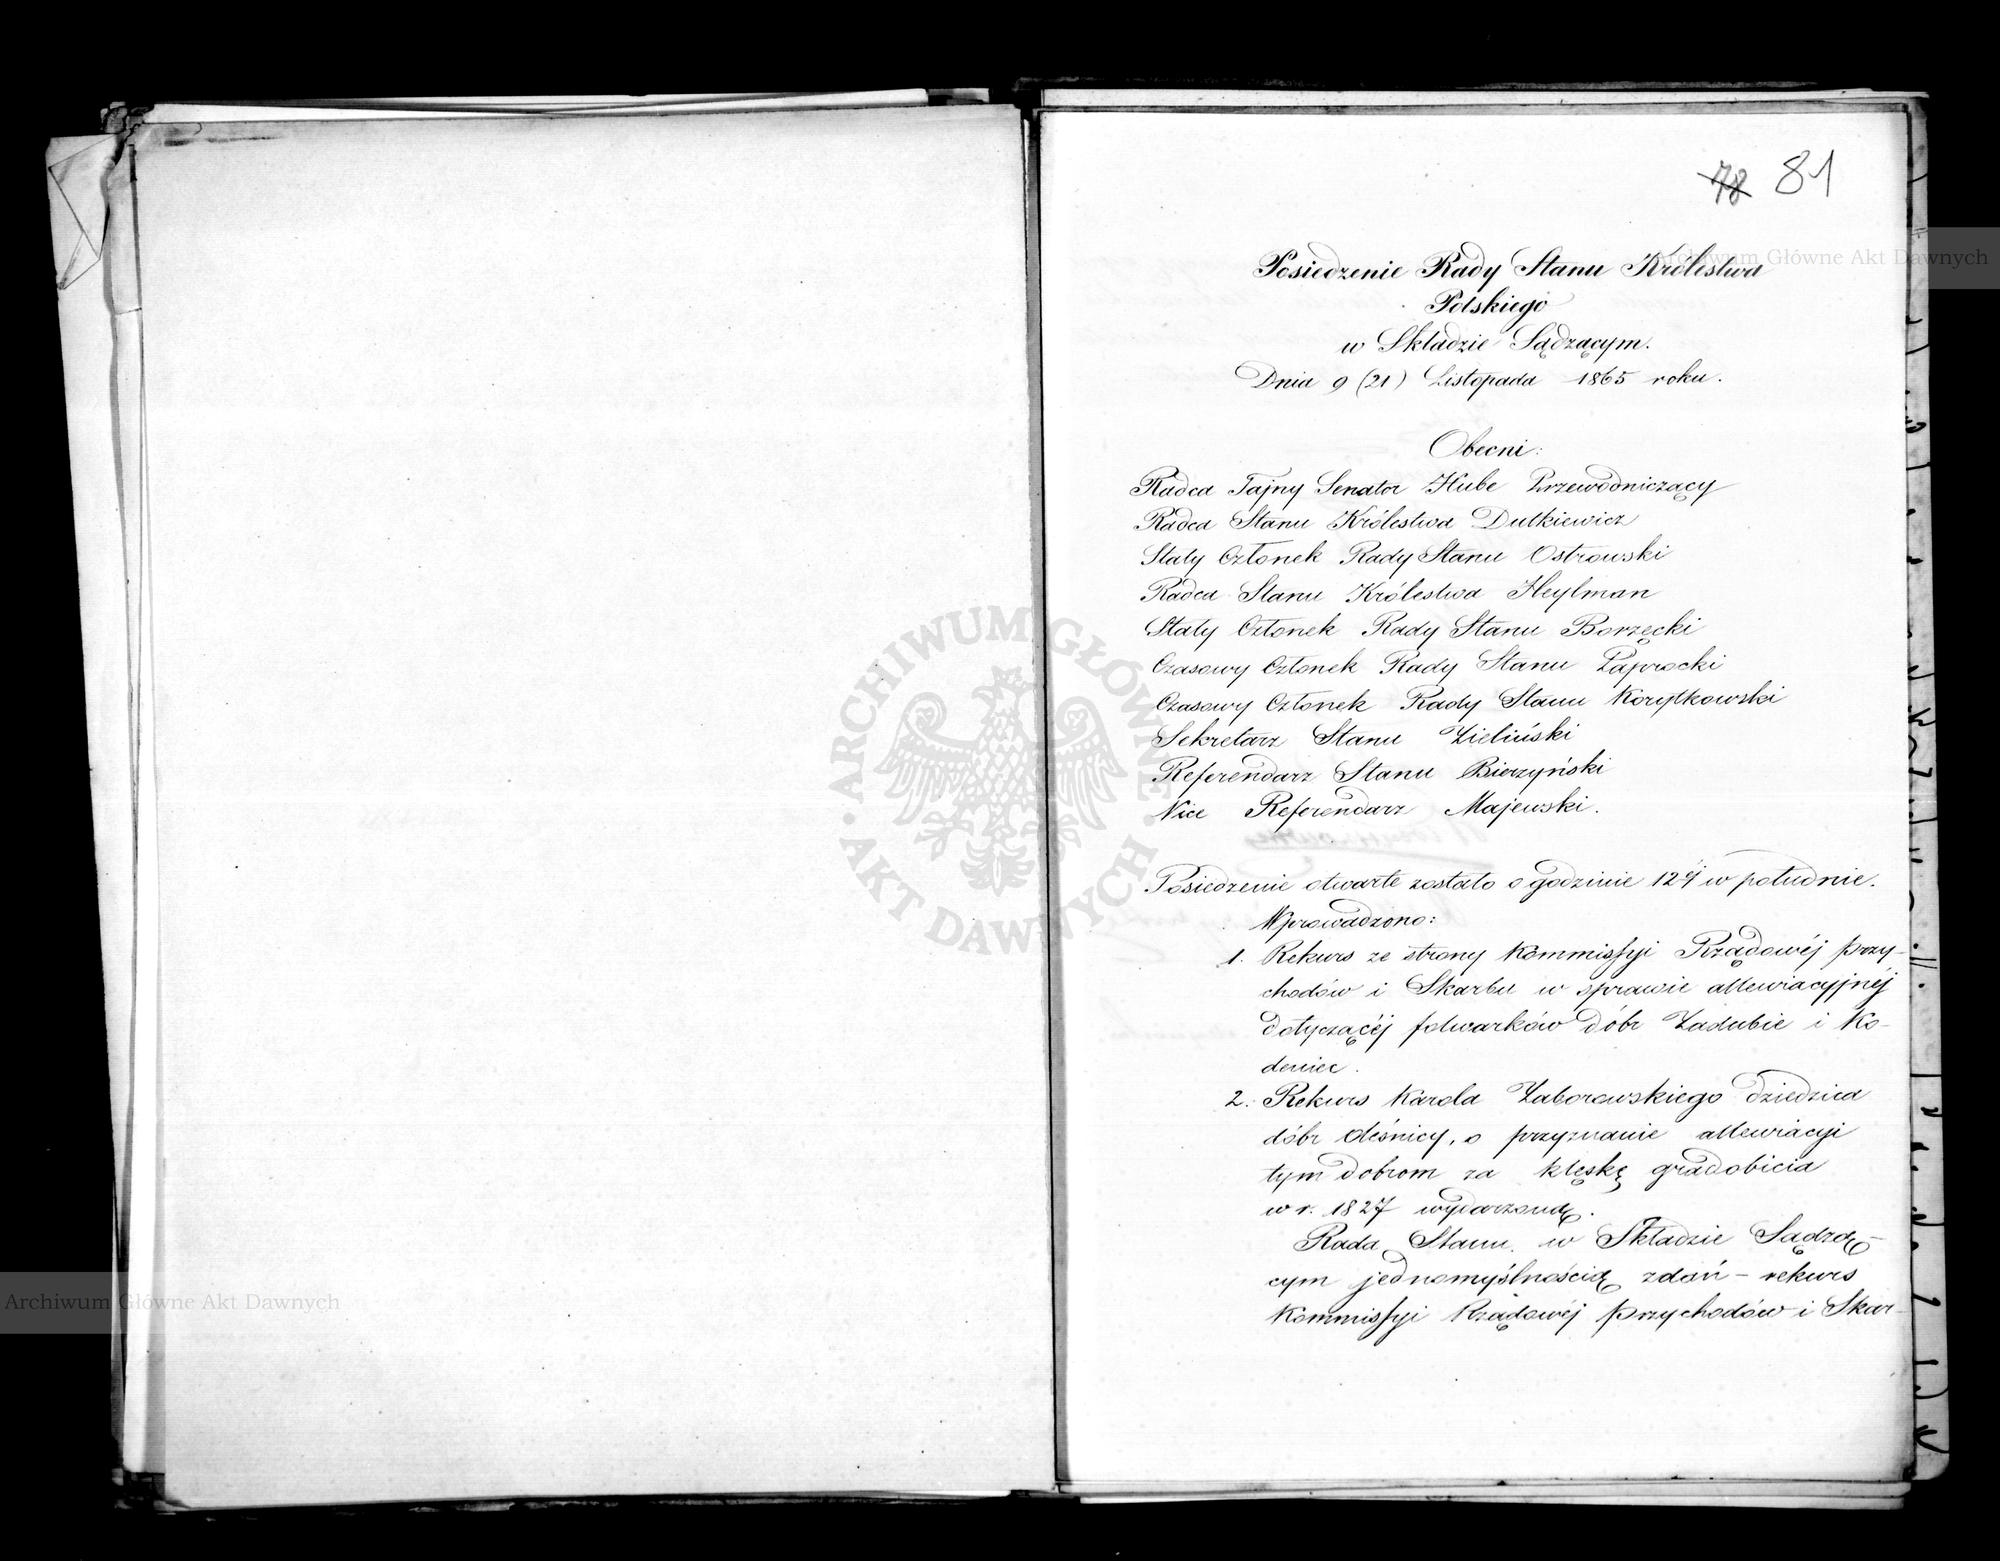 78 81
Posiedzenie Rady Stanu Królestwa
Polskiego
w Składzie Sądzącym.
Dnia 9 (21) Listopada 1865 roku.
Obecni:
Radca Tajny Senator Hube Przewodniczący
Radca Stanu Królestwa Dutkiewicz
Stały Członek Rady Stanu Ostrowski
Radca Stanu Królestwa Heylman
Stały Członek Rady Stanu Borzęcki
Czasowy Członek Rady Stanu Paprocki
Czasowy Członek Rady Stanu Korytkowski
Sekretarz Stanu Zieliński
Referendarz Stanu Bierzyński
Vice Referendarz Majewski.
Posiedzenie otwarte zostało o godzinie 12éj w południe.
Wprowadzono:
1. Rekurs ze strony Kommissyi Rządowéj przy-
chodów i Skarbu w sprawie allewiacyjnéj
dotyczącéj folwarków dóbr Zadubie i Ko-
deniec.
2. Rekurs Karola Zaborowskiego dziedzica
dóbr Oleśnicy, o przyznanie allewiacyi
tym dobrom za klęskę gradobicia
w r. 1827 wydarzoną.
Rada Stanu w Składzie Sądzą-
cym jednomyślnością zdań – rekurs
Kommissyi Rządowéj przychodów i Skar-
Archiwum Główne Akt Dawnych
Archiwum Główne Akt Dawnych
ARCHIWUM GŁÓWNE AKT DAWNYCH